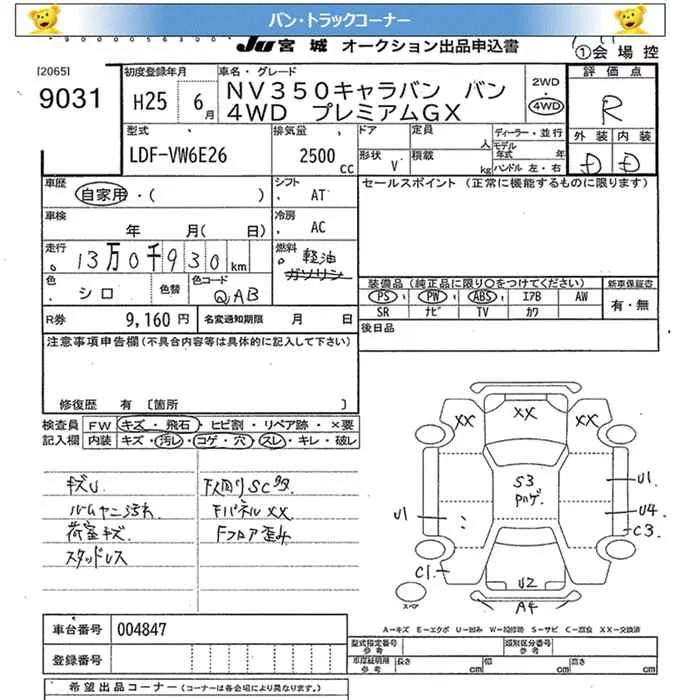 バン・トラックコーナー
JU 宮城 オークション出品申込書
①会場控
[2065]
9031
初度登録年月
H25 6月
車名・グレード
NV350キャラバン バン
4WD プレミアムGX
2WD
・
4WD
評価点
R
外装 内装
D D
型式
LDF-VW6E26
排気量
2500cc
ドア 定員 人
形状 V 積載 kg
ディーラー・並行
モデル年式 年
ハンドル 左・右
車歴
自家用・( )
シフト
AT
セールスポイント (正常に機能するものに限ります)
車検
年 月( 日)
冷房
AC
走行
13万0千930km
燃料
軽油
ガソリン
色
シロ
色替
色コード
QAB
装備品(純正品に限り○をつけてください)
新車保証書
PS PW ABS エアB AW
SR ナビ TV カワ
有・無
R券
9,160円
名変通知期限 月 日
後日品
注意事項申告欄(不具合内容等は具体的に記入して下さい)
修復歴 有 〔箇所 〕
検査員記入欄
FW キズ・飛石・ヒビ割・リペア跡・×要
内装 キズ・汚レ・コゲ・穴・スレ・キレ・破レ
キズU
ルームヤニ汚れ
荷室キズ
スタッドレス
下廻りSC多
FパネルXX
Fフロア歪み
XX
XX
XX
S3
Pハゲ
U1
U1
U4
C3
C1
U2
A4
スペア
A−キズ E−エクボ U−凹み W−補修跡 S−サビ C−腐食 XX−交換済
車台番号
004847
登録番号
型式指定番号 類別区分番号
車庫証明用参考
長さ cm 幅 cm 高さ cm
希望出品コーナー(コーナーは各会場により異なります。)